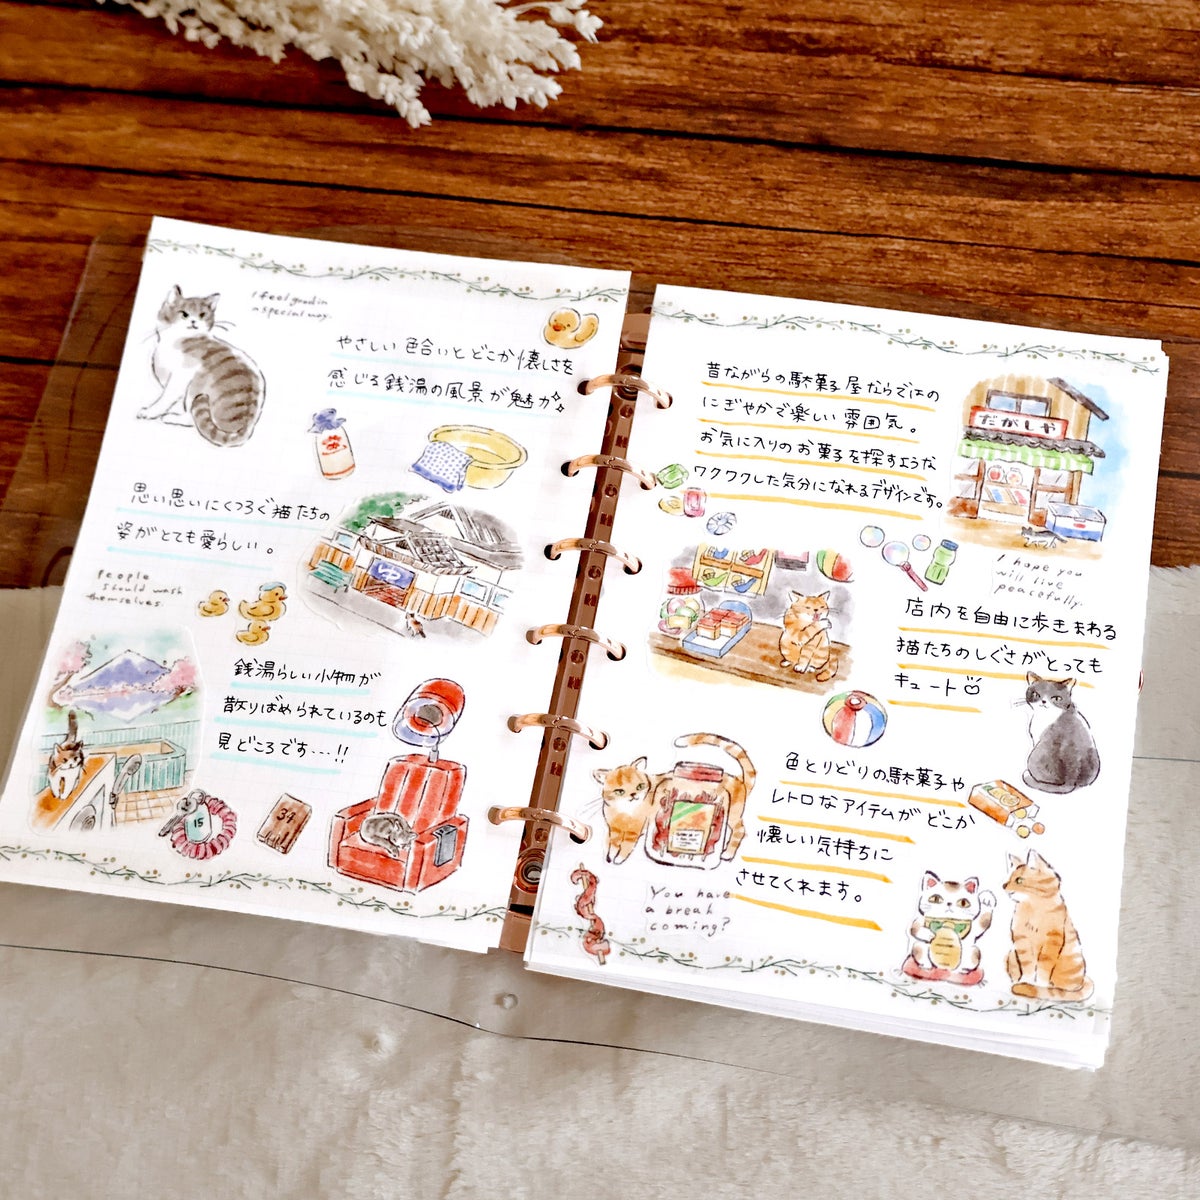 I feel good in
a special way.
やさしい色合いとどこか懐しさを
感じる銭湯の風景が魅力
思い思いにくつろぐ猫たちの
姿がとても愛らしい。
ゆ
People
should wash
themselves.
銭湯らしい小物が
散りばめられているのも
見どころです…!!
15
34
昔ながらの駄菓子屋ならではの
にぎやかで楽しい雰囲気。
お気に入りのお菓子を探すような
ワクワクした気分になれるデザインです。
だがしや
I hope you
will live
peacefully.
店内を自由に歩きまわる
猫たちのしぐさがとっても
キュート
色とりどりの駄菓子や
レトロなアイテムがどこか
懐しい気持ちに
させてくれます。
You have
a break
coming?